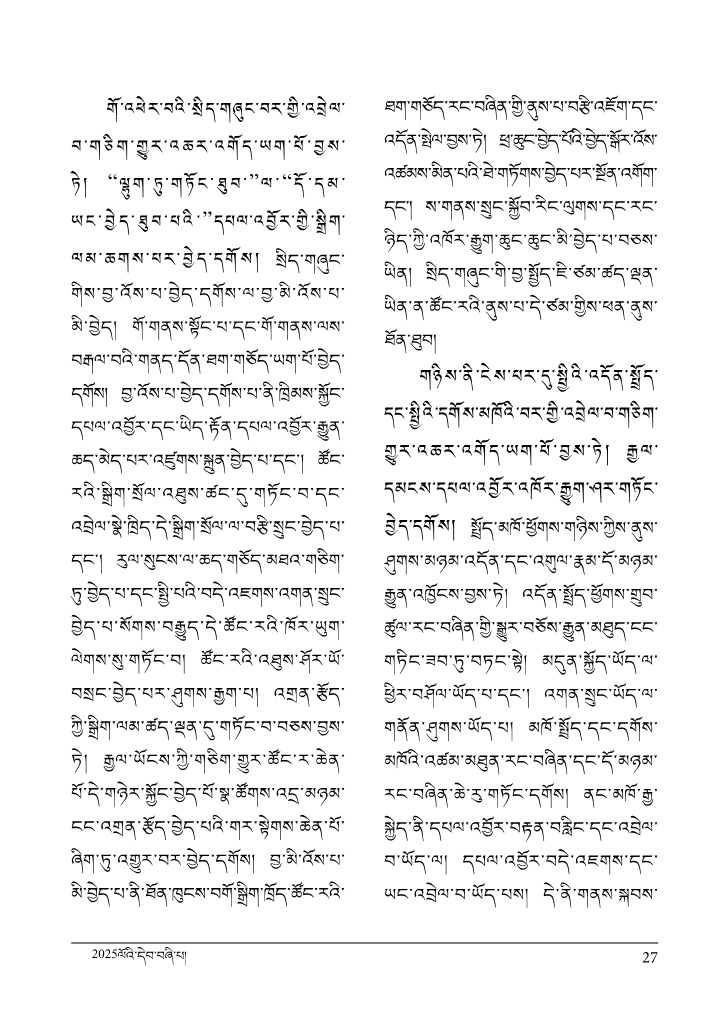 གོ་འཕེར་བའི་སྲིད་གཞུང་བར་གྱི་འབྲེལ་
བ་གཅིག་གྱུར་འཆར་འགོད་ཡག་པོ་བྱས་
ཏེ། “ལྷུག་ཏུ་གཏོང་ཐུབ་”ལ་“དོ་དམ་
ཡང་བྱེད་ཐུབ་པའི་”དཔལ་འབྱོར་གྱི་སྒྲིག་
ལམ་ཆགས་པར་བྱེད་དགོས། སྲིད་གཞུང་
གིས་བྱ་འོས་པ་བྱེད་དགོས་ལ་བྱ་མི་འོས་པ་
མི་བྱེད། གོ་གནས་སྟོང་པ་དང་གོ་གནས་ལས་
བརྒལ་བའི་གནད་དོན་ཐག་གཅོད་ཡག་པོ་བྱེད་
དགོས། བྱ་འོས་པ་བྱེད་དགོས་པ་ནི་ཁྲིམས་སྐྱོང་
དཔལ་འབྱོར་དང་ཡིད་རྟོན་དཔལ་འབྱོར་རྒྱུན་
ཆད་མེད་པར་འཛུགས་སྐྲུན་བྱེད་པ་དང་། ཚོང་
རའི་སྒྲིག་སྲོལ་འཐུས་ཚང་དུ་གཏོང་བ་དང་
འབྲེལ་སྣེ་ཁྲིད་དེ་སྒྲིག་སྲོལ་ལ་བརྩི་སྲུང་བྱེད་པ་
དང་། རུལ་སུངས་ལ་ཆད་གཅོད་མཐའ་གཅིག་
ཏུ་བྱེད་པ་དང་སྤྱི་པའི་བདེ་འཇགས་འགན་སྲུང་
བྱེད་པ་སོགས་བརྒྱུད་དེ་ཚོང་རའི་ཁོར་ཡུག་
ལེགས་སུ་གཏོང་བ། ཚོང་རའི་འཐུས་ཤོར་ཡོ་
བསྲང་བྱེད་པར་ཤུགས་རྒྱག་པ། འགྲན་རྩོད་
ཀྱི་སྒྲིག་ལམ་ཚད་ལྡན་དུ་གཏོང་བ་བཅས་བྱས་
ཏེ། རྒྱལ་ཡོངས་ཀྱི་གཅིག་གྱུར་ཚོང་ར་ཆེན་
པོ་དེ་གཉེར་སྐྱོང་བྱེད་པོ་སྣ་ཚོགས་འདྲ་མཉམ་
ངང་འགྲན་རྩོད་བྱེད་པའི་གར་སྟེགས་ཆེན་པོ་
ཞིག་ཏུ་འགྱུར་བར་བྱེད་དགོས། བྱ་མི་འོས་པ་
མི་བྱེད་པ་ནི་ཐོན་ཁུངས་བགོ་སྒྲིག་ཁྲོད་ཚོང་རའི་
ཐག་གཅོད་རང་བཞིན་གྱི་ནུས་པ་བརྩི་འཇོག་དང་
འདོན་སྤེལ་བྱས་ཏེ། ཕྲ་ཆུང་བྱེད་པོའི་བྱེད་སྒོར་འོས་
འཚམས་མིན་པའི་ཐེ་གཏོགས་བྱེད་པར་སྔོན་འགོག་
དང་། ས་གནས་སྲུང་སྐྱོབ་རིང་ལུགས་དང་རང་
ཉིད་ཀྱི་འཁོར་རྒྱུག་ཆུང་ཆུང་མི་བྱེད་པ་བཅས་
ཡིན། སྲིད་གཞུང་གི་བྱ་སྤྱོད་ཇི་ཙམ་ཚད་ལྡན་
ཡིན་ན་ཚོང་རའི་ནུས་པ་དེ་ཙམ་གྱིས་ཕན་ནུས་
ཐོན་ཐུབ།
གཉིས་ནི་ངེས་པར་དུ་སྤྱིའི་འདོན་སྤྲོད་
དང་སྤྱིའི་དགོས་མཁོའི་བར་གྱི་འབྲེལ་བ་གཅིག་
གྱུར་འཆར་འགོད་ཡག་པོ་བྱས་ཏེ། རྒྱལ་
དམངས་དཔལ་འབྱོར་འཁོར་རྒྱུག་ཤར་གཏོང་
བྱེད་དགོས། སྤྲོད་མཁོ་ཕྱོགས་གཉིས་ཀྱིས་ནུས་
ཤུགས་མཉམ་འདོན་དང་འགུལ་རྣམ་དོ་མཉམ་
རྒྱུན་འཁྱོངས་བྱས་ཏེ། འདོན་སྤྲོད་ཕྱོགས་གྲུབ་
ཚུལ་རང་བཞིན་གྱི་སྒྱུར་བཅོས་རྒྱུན་མཐུད་ངང་
གཏིང་ཟབ་ཏུ་བཏང་སྟེ། མདུན་སྐྱོད་ཡོད་ལ་
ཕྱིར་བཤོལ་ཡོད་པ་དང་། འགན་སྲུང་ཡོད་ལ་
གནོན་ཤུགས་ཡོད་པ། མཁོ་སྤྲོད་དང་དགོས་
མཁོའི་འཚམ་མཐུན་རང་བཞིན་དང་དོ་མཉམ་
རང་བཞིན་ཆེ་རུ་གཏོང་དགོས། ནང་མཁོ་རྒྱ་
སྐྱེད་ནི་དཔལ་འབྱོར་བརྟན་བརླིང་དང་འབྲེལ་
བ་ཡོད་ལ། དཔལ་འབྱོར་བདེ་འཇགས་དང་
ཡང་འབྲེལ་བ་ཡོད་པས། དེ་ནི་གནས་སྐབས་
2025ལོའི་དེབ་བཞི་པ།
27